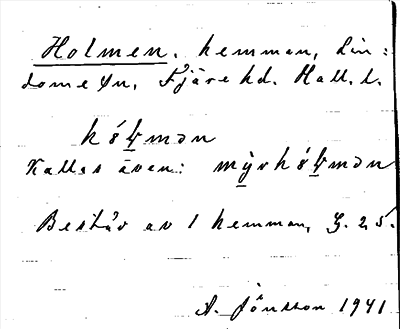 Holmen. hemman, Lin=
dome sn. Fjäre hd. Hall. l.
Kallas även:
Består av 1 hemman, J. 25.
A. Jönsson 1941